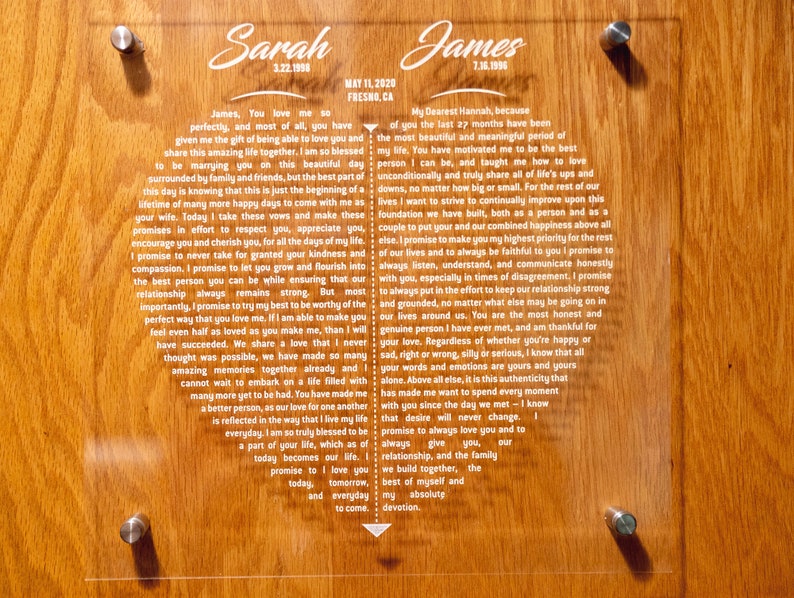 Sarah
3.22.1998
James
7.16.1996
MAY 11, 2020
FRESNO, CA
James, You love me so
perfectly, and most of all, you have
given me the gift of being able to love you and
share this amazing life together. I am so blessed
to be marrying you on this beautiful day
surrounded by family and friends, but the best part of
this day is knowing that this is just the beginning of a
lifetime of many more happy days to come with me as
your wife. Today I take these vows and make these
promises in effort to respect you, appreciate you,
encourage you and cherish you, for all the days of my life.
I promise to never take for granted your kindness and
compassion. I promise to let you grow and flourish into
the best person you can be while ensuring that our
relationship always remains strong. But most
importantly, I promise to try my best to be worthy of the
perfect way that you love me. If I am able to make you
feel even half as loved as you make me, than I will
have succeeded. We share a love that I never
thought was possible, we have made so many
amazing memories together already and I
cannot wait to embark on a life filled with
many more yet to be had. You have made me
a better person, as our love for one another
is reflected in the way that I live my life
everyday. I am so truly blessed to be
a part of your life, which as of
today becomes our life. I
promise to I love you
today, tomorrow,
and everyday
to come.
My Dearest Hannah, because
of you the last 27 months have been
the most beautiful and meaningful period of
my life. You have motivated me to be the best
person I can be, and taught me how to love
unconditionally and truly share all of life's ups and
downs, no matter how big or small. For the rest of our
lives I want to strive to continually improve upon this
foundation we have built, both as a person and as a
couple to put your and our combined happiness above all
else. I promise to make you my highest priority for the rest
of our lives and to always be faithful to you I promise to
always listen, understand, and communicate honestly
with you, especially in times of disagreement. I promise
to always put in the effort to keep our relationship strong
and grounded, no matter what else may be going on in
our lives around us. You are the most honest and
genuine person I have ever met, and am thankful for
your love. Regardless of whether you're happy or
sad, right or wrong, silly or serious, I know that all
your words and emotions are yours and yours
alone. Above all else, it is this authenticity that
has made me want to spend every moment
with you since the day we met – I know
that desire will never change. I
promise to always love you and to
always give you, our
relationship, and the family
we build together, the
best of myself and
my absolute
devotion.